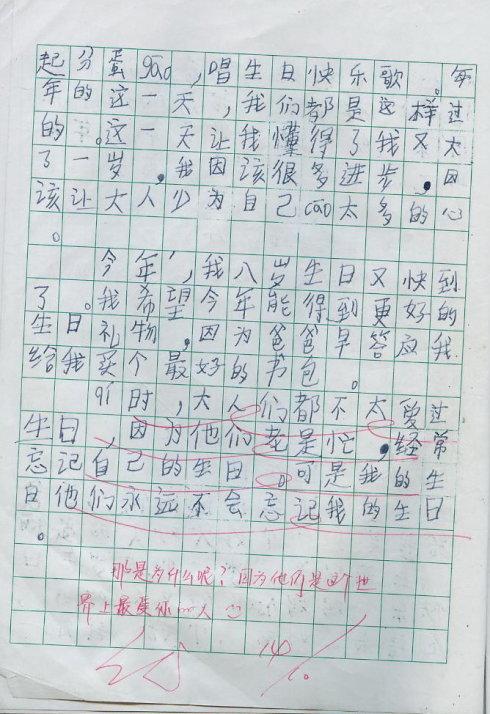 起分蛋gāo,唱生日快乐歌。每
年的这一天,我们都是这样过
的。这一天让我懂得了我又大
了一岁,我因该很多进步,因
该让大人少为自己cāo太多的心
。
今年,我八岁生日又快到
了。我希望今年能得到更好的
生日礼物,因为爸爸早答应我
给我买个最好的书包。
qí时,大人们都不太爱过
生日,因为他们老是忙,经常
忘记自己的生日。可是我的生
日他们永远不会忘记我的生日
。
那是为什么呢?因为他们是这个世
界上最爱你的人